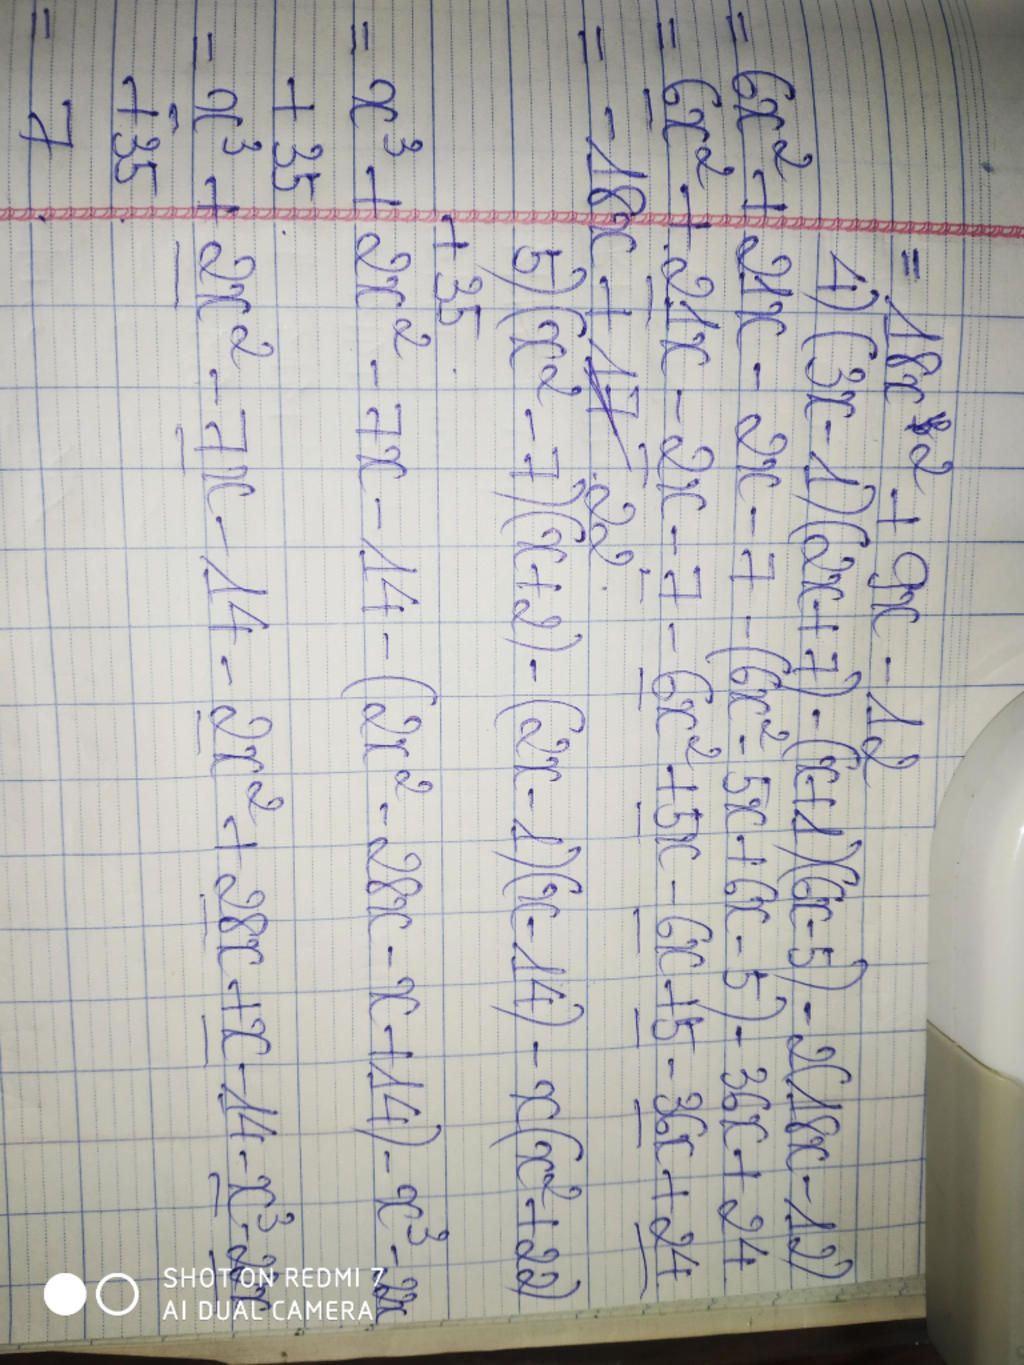 = 18x² + 9x - 12
4) (3x-1)(2x+7) - (x+1)(6x-5) - 2(18x-12)
= 6x² + 21x - 2x - 7 - (6x² - 5x + 6x - 5) - 36x + 24
= 6x² + 21x - 2x - 7 - 6x² + 5x - 6x + 5 - 36x + 24
= - 18x + 22.
5) (x² - 7)(x+2) - (2x - 1)(x - 14) - x(x² + 22)
+ 35.
= x³ + 2x² - 7x - 14 - (2x² - 28x - x + 14) - x³ - 22x
+ 35.
= x³ + 2x² - 7x - 14 - 2x² + 28x + x - 14 - x³ - 22x
+ 35.
= 7
SHOT ON REDMI 7
AI DUAL CAMERA